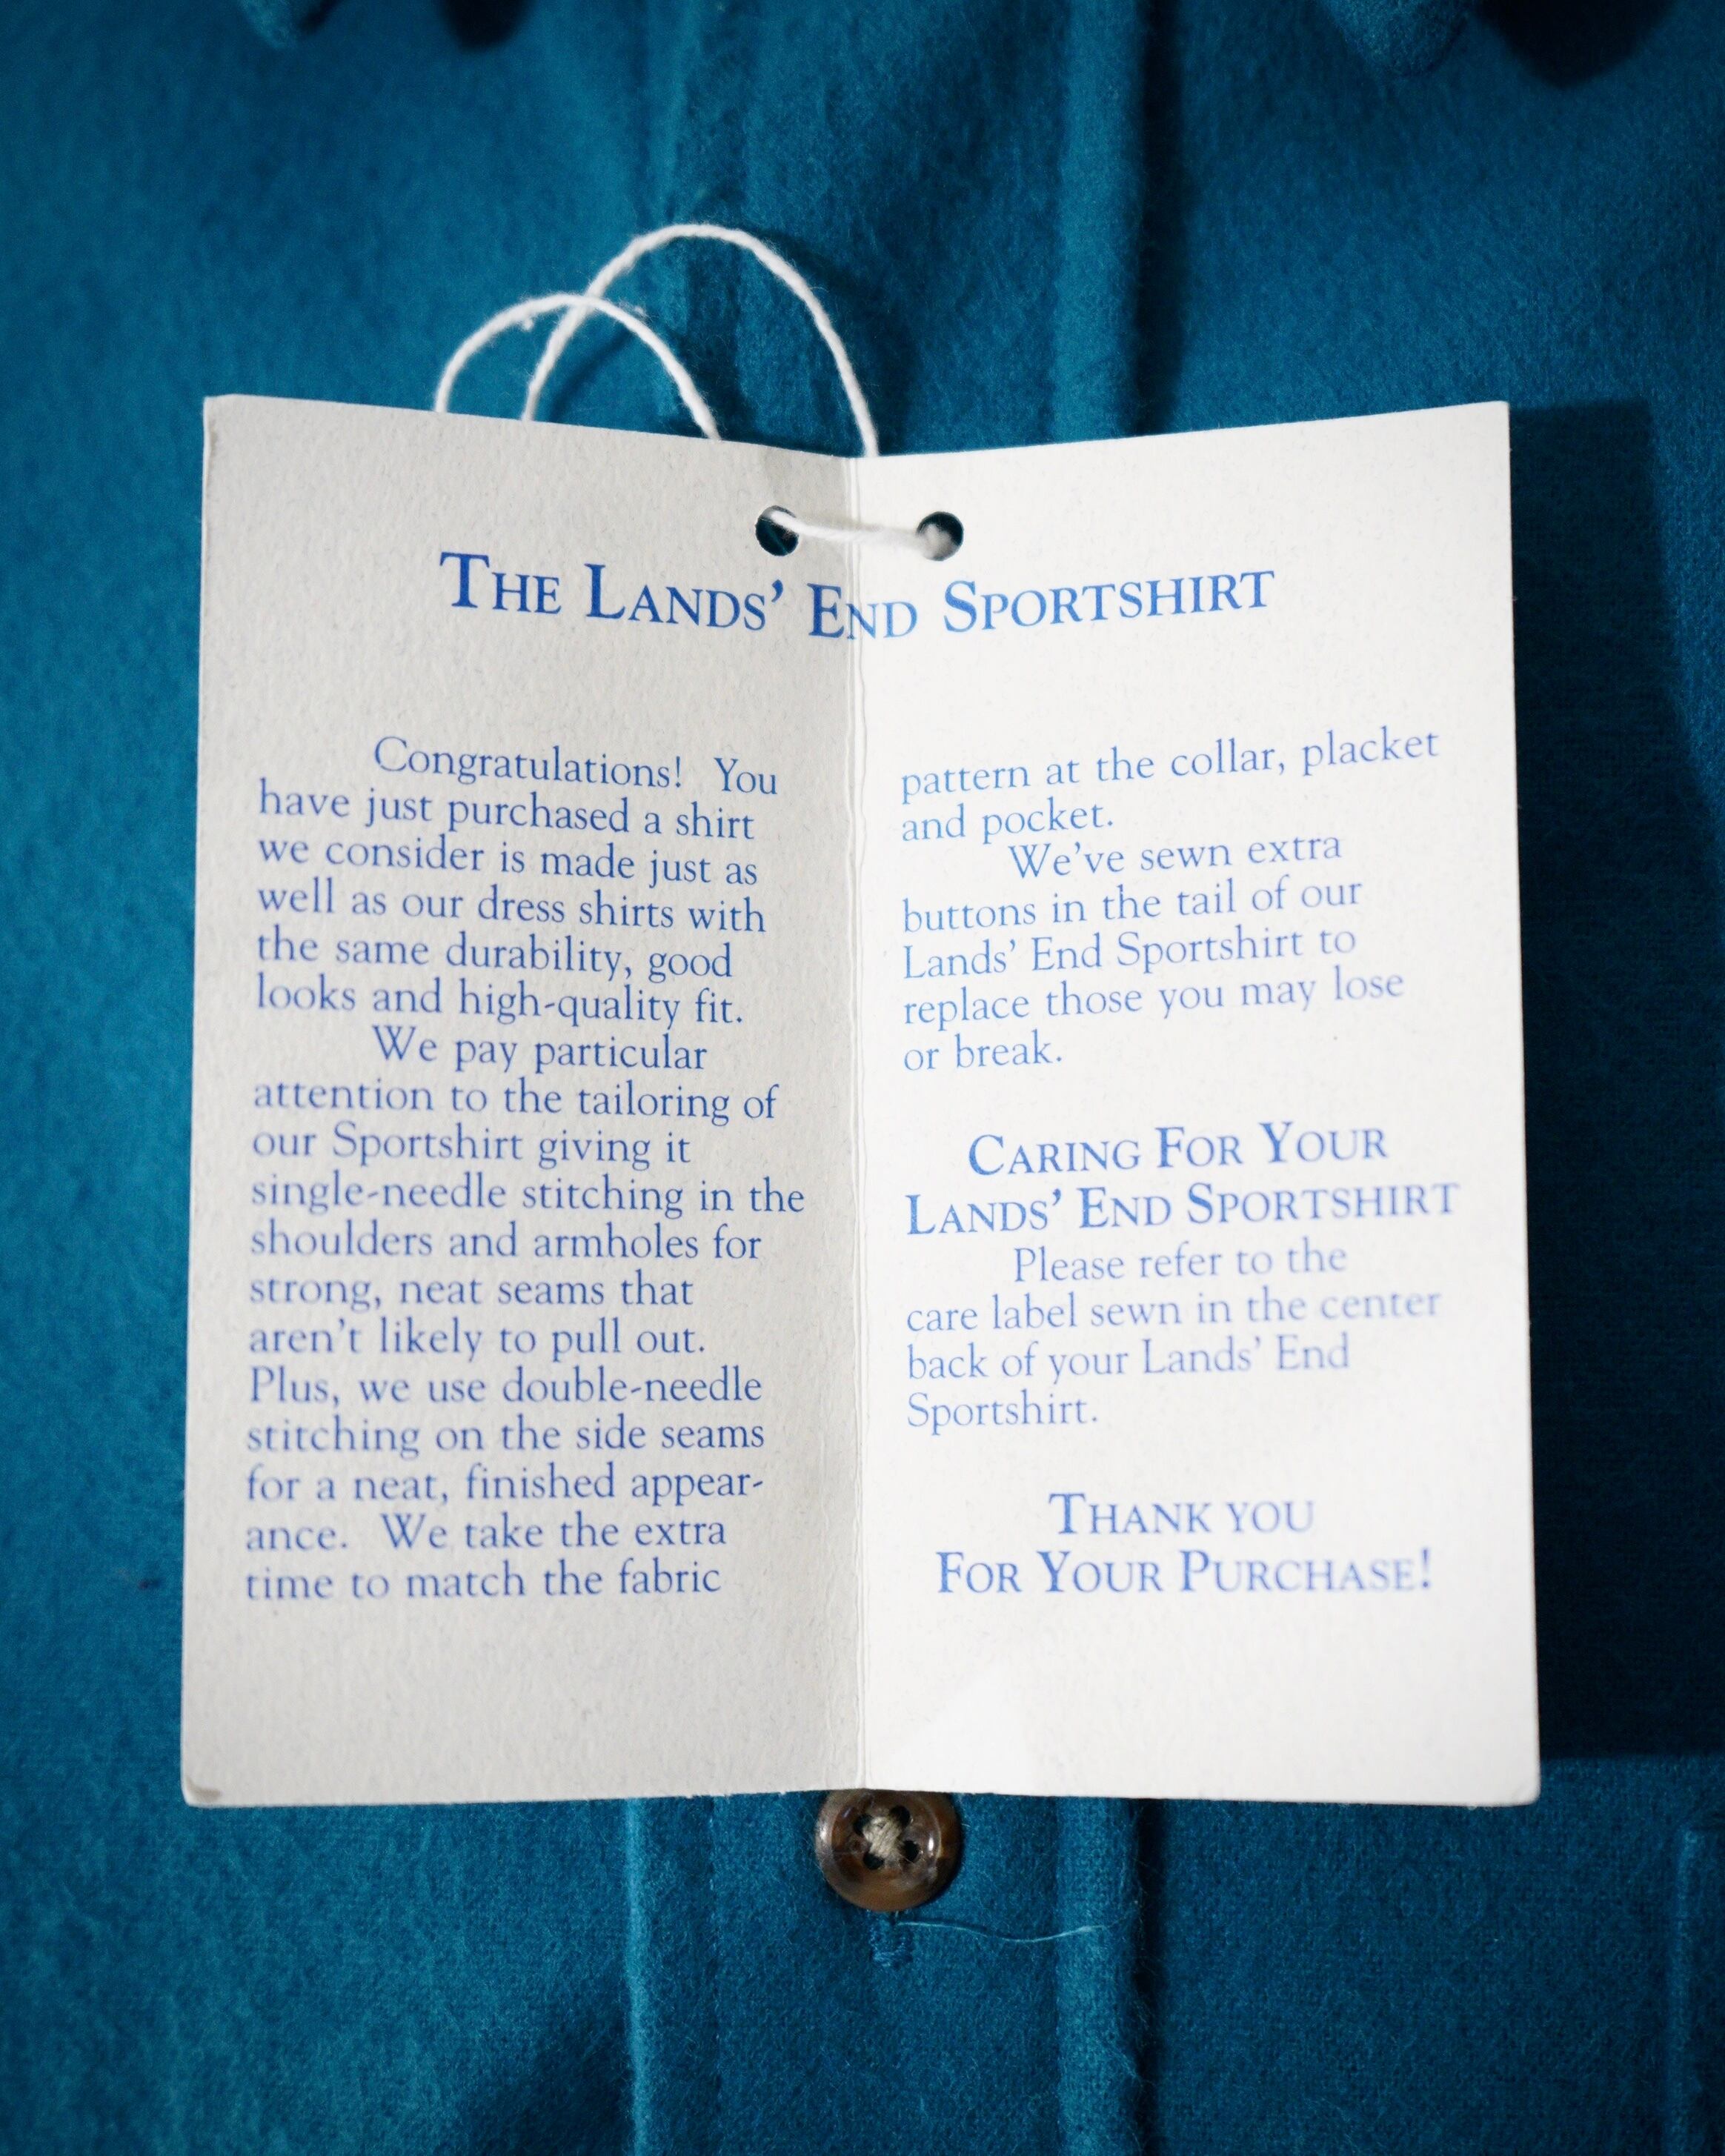 THE LANDS' END SPORTSHIRT
Congratulations! You
have just purchased a shirt
we consider is made just as
well as our dress shirts with
the same durability, good
looks and high-quality fit.
We pay particular
attention to the tailoring of
our Sportshirt giving it
single-needle stitching in the
shoulders and armholes for
strong, neat seams that
aren't likely to pull out.
Plus, we use double-needle
stitching on the side seams
for a neat, finished appear-
ance. We take the extra
time to match the fabric
pattern at the collar, placket
and pocket.
We've sewn extra
buttons in the tail of our
Lands' End Sportshirt to
replace those you may lose
or break.
CARING FOR YOUR
LANDS' END SPORTSHIRT
Please refer to the
care label sewn in the center
back of your Lands' End
Sportshirt.
THANK YOU
FOR YOUR PURCHASE!